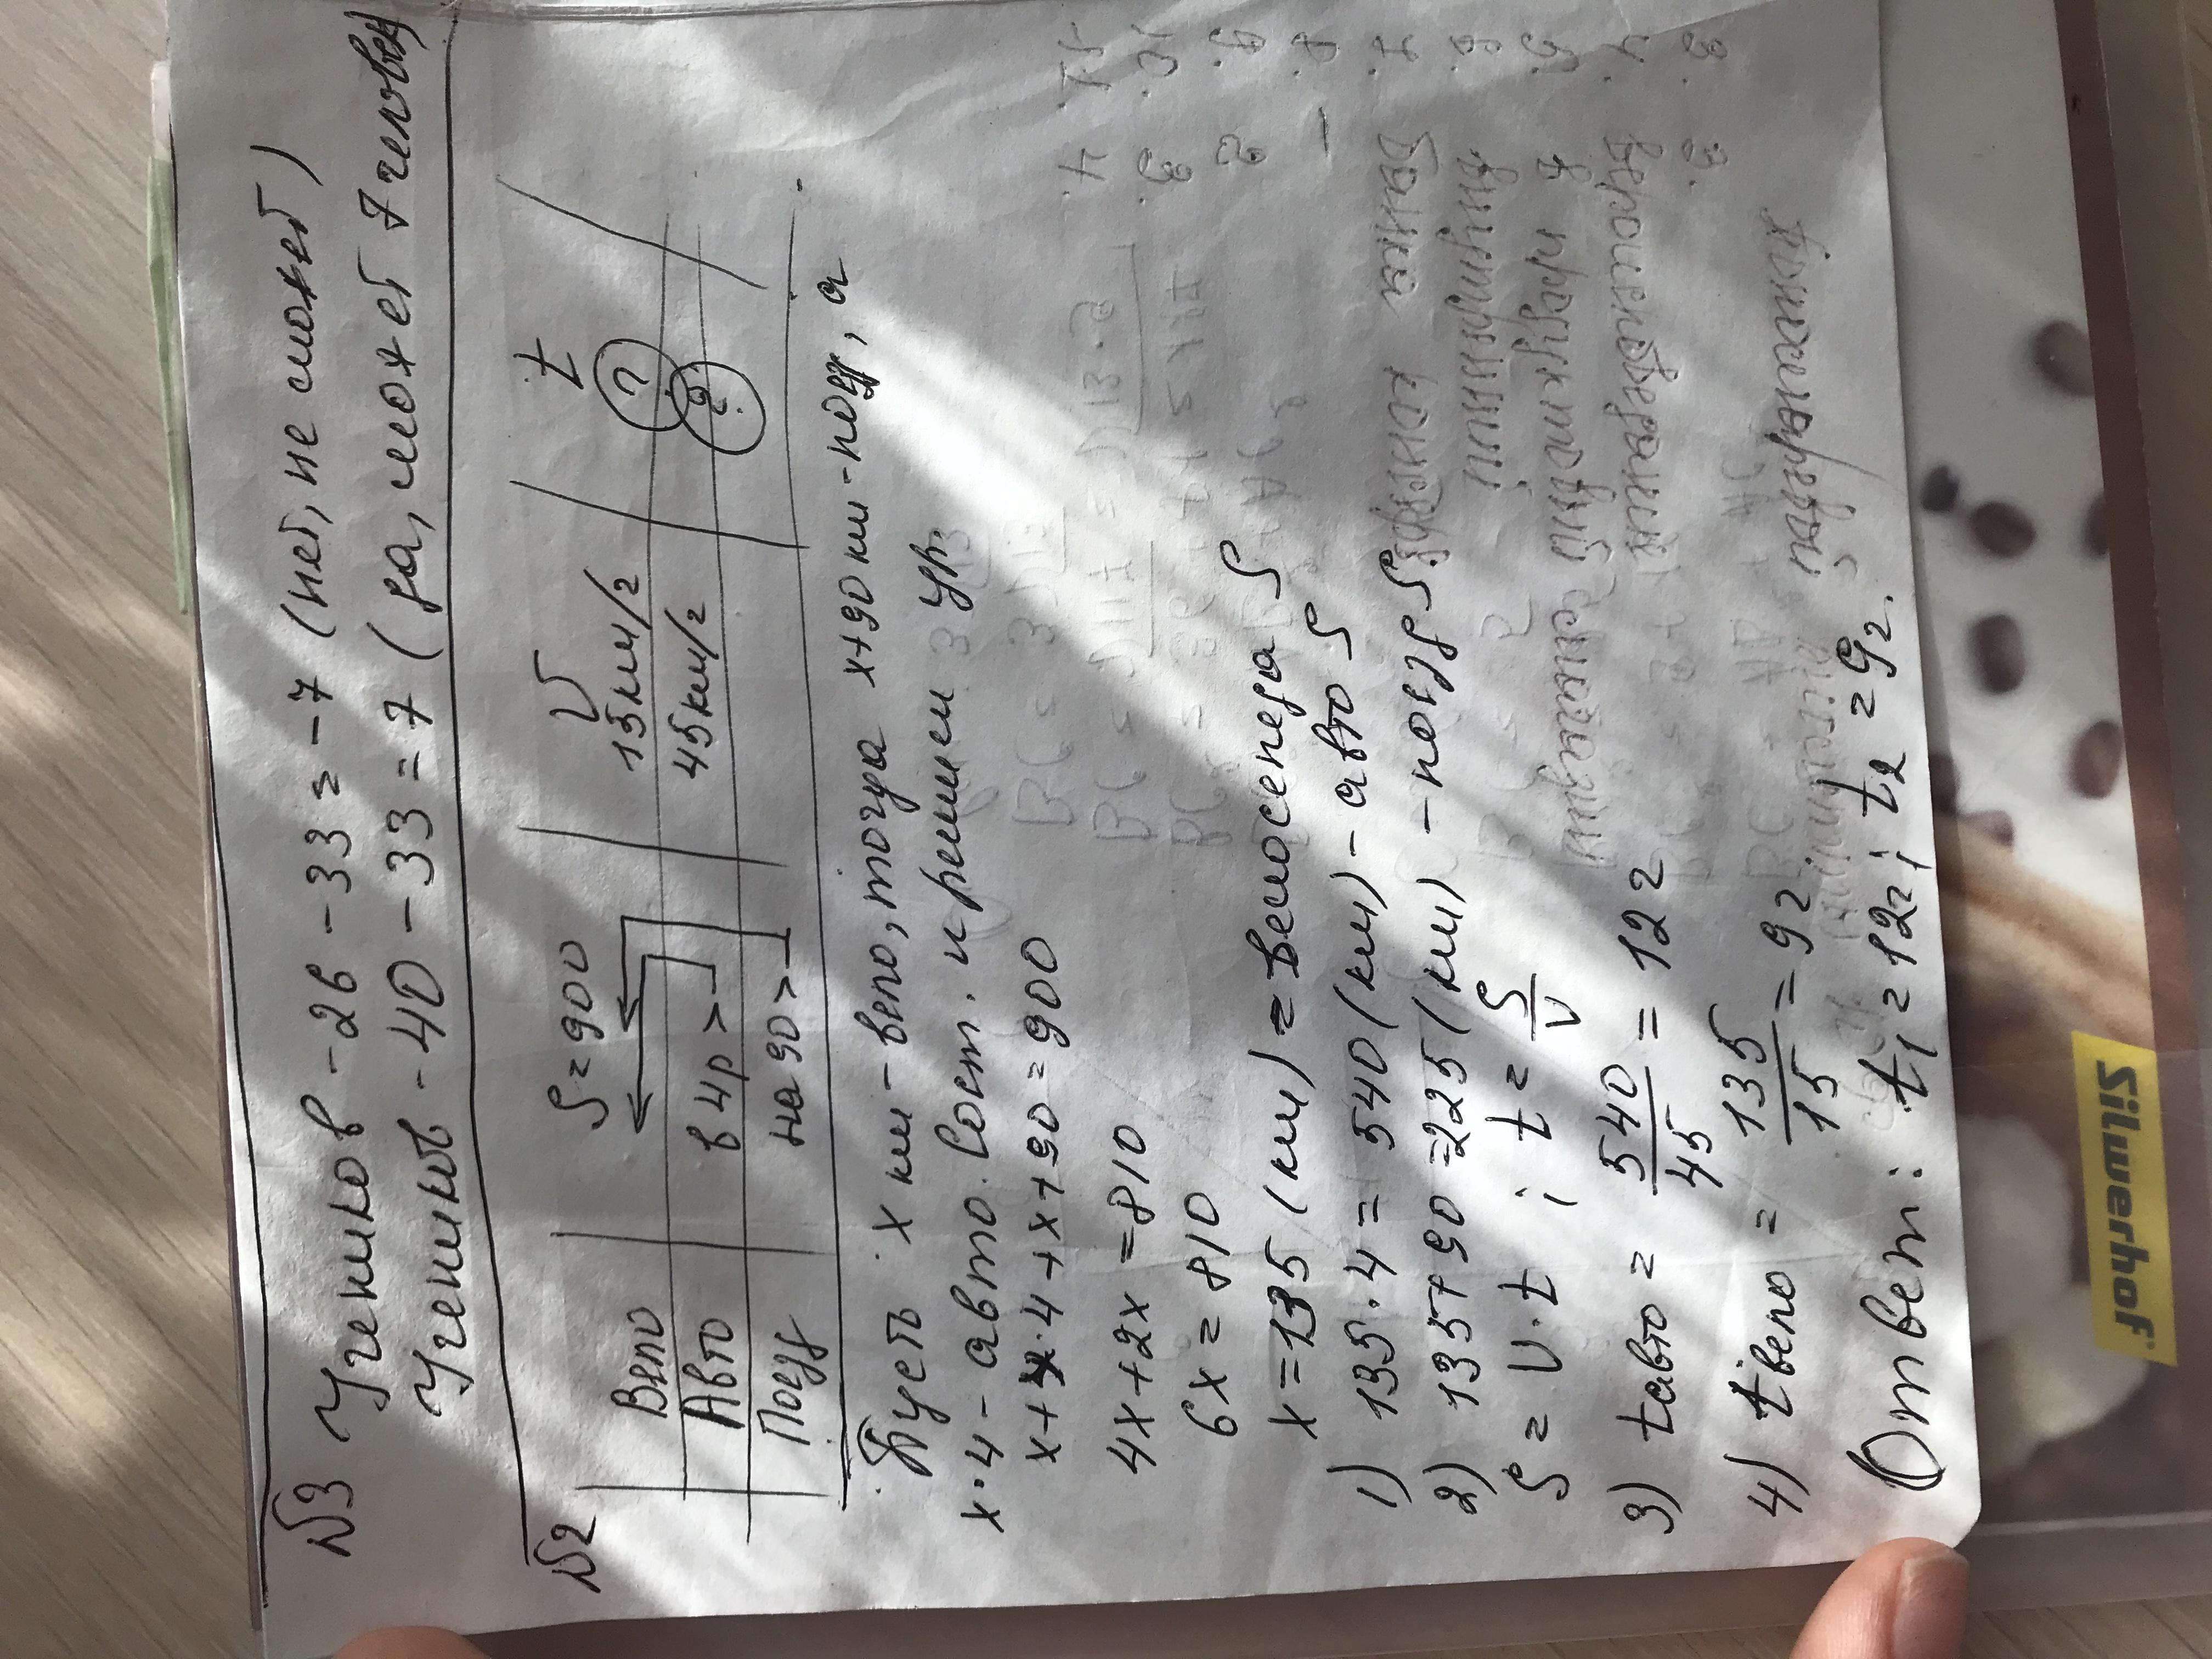 №3 Учеников - 26 - 33 = -7 (нет, не сможет)
Учеников - 40 - 33 = 7 (да, может 7 человек
№2
S=900 V t
Вело 15км/г ?
Авто в 4р > 45км/г ?
Поезд на 90 >
Пусть x км - вело, тогда x+90 км - поезд, а
x·4 - авто. Сост. и решим ур.
x+x·4+x+90=900
4x+2x=810
6x=810
x=135 (км) = велосепеда S
1) 135·4 = 540 (км) - авто S
2) 135+90=225 (км) - поезд S.
S = V·t ; t = S/V
3) tавто = 540/45 = 12 г
4) tвело = 135/15 = 9г
Ответ: t1=12г; t2=9г.
Silwerhof